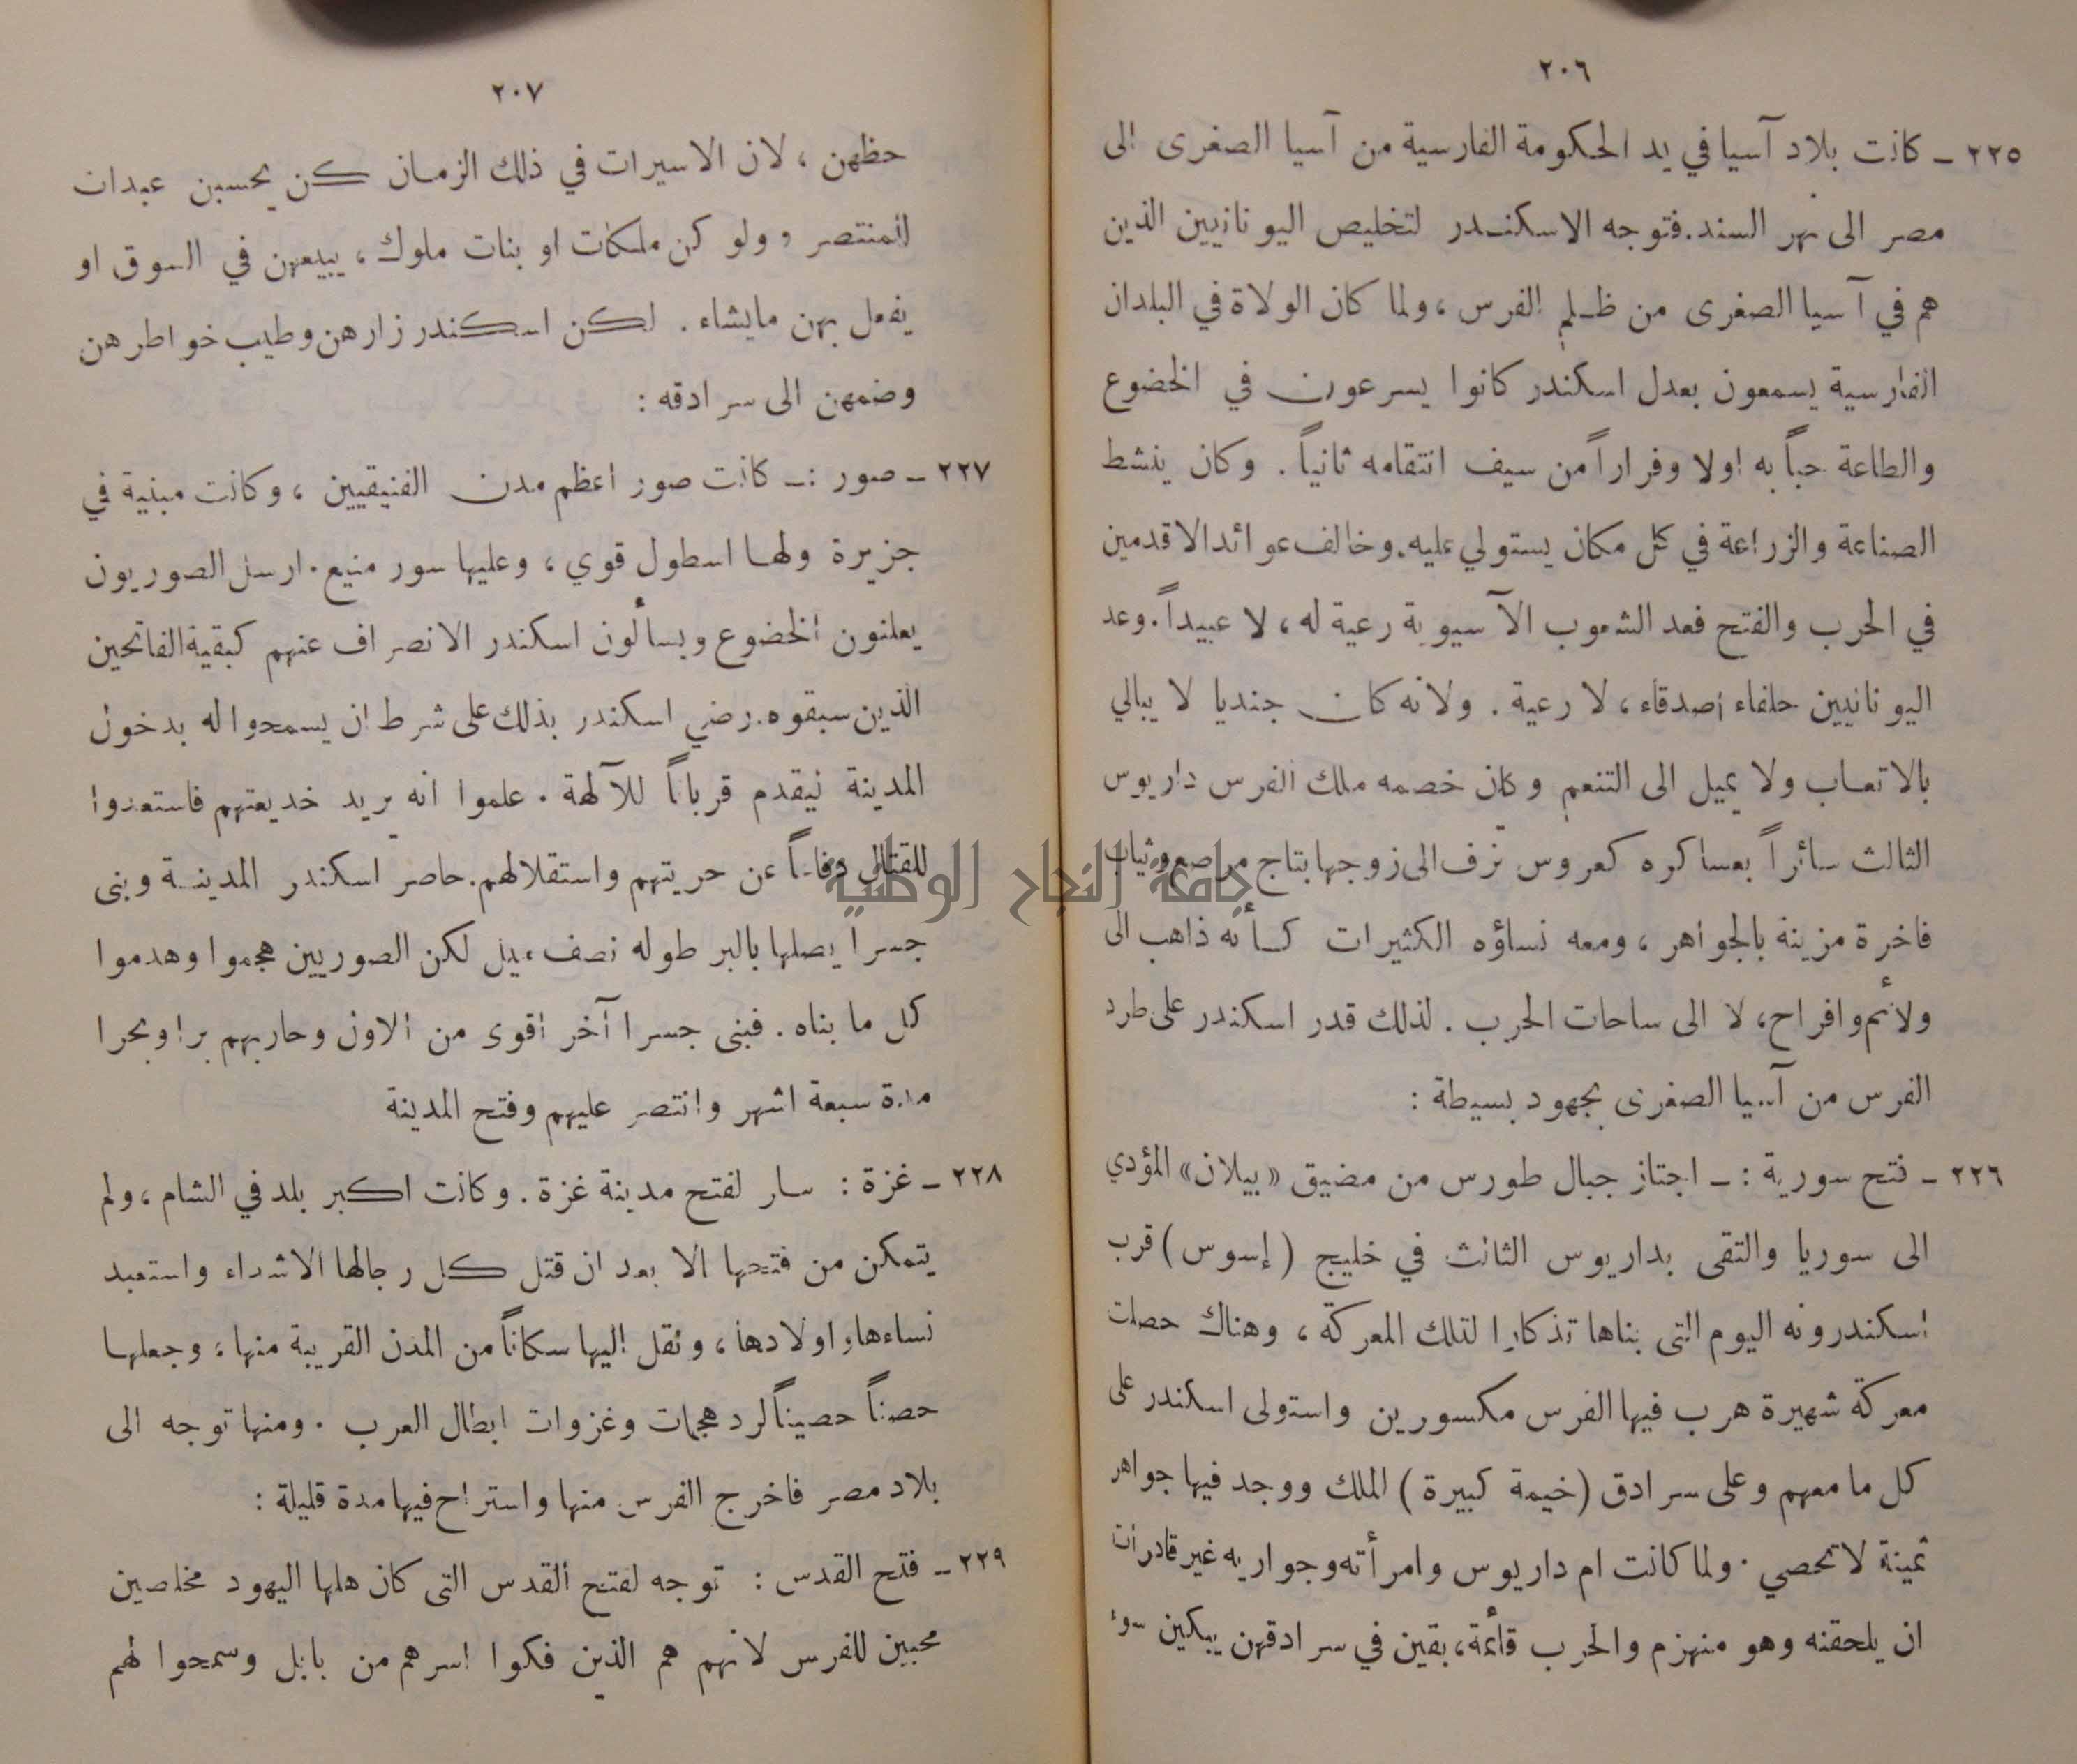 ٢٠٦
٢٢٥ ـ كانت بلاد آسيا في يد الحكومة الفارسية من آسيا الصغرى الى
مصر الى نهر السند. فتوجه الاسكندر لتخليص اليونانيين الذين
هم في آسيا الصغرى من ظلم الفرس ، ولما كان الولاة في البلدان
الفارسية يسمعون بعدل اسكندر كانوا يسرعون في الخضوع
والطاعة حباً به اولا وفراراً من سيف انتقامه ثانياً . وكان ينشط
الصناعة والزراعة في كل مكان يستولي عليه. وخالف عوائد الاقدمين
في الحرب والفتح فعد الشعوب الآسيوية رعية له ، لا عبيداً . وعد
اليونانيين حلفاء اصدقاء ، لا رعية . ولانه كان جنديا لا يبالي
بالاتعاب ولا يميل الى التنعم وكان خصمه ملك الفرس داريوس
الثالث سائراً بعساكره كعروس تزف الى زوجها بتاج مرصع وثياب
فاخرة مزينة بالجواهر ، ومعه نساؤه الكثيرات كأنه ذاهب الى
ولائم وافراح، لا الى ساحات الحرب . لذلك قدر اسكندر على طرد
الفرس من آسيا الصغرى بجهود بسيطة :
٢٢٦ ـ فتح سورية : ـ اجتاز جبال طورس من مضيق «بيلان» المؤدي
الى سوريا والتقى بداريوس الثالث في خليج (إسوس) قرب
اسكندرونه اليوم التى بناها تذكارا لتلك المعركة ، وهناك حصلت
معركة شهيرة هرب فيها الفرس مكسورين واستولى اسكندر على
كل ما معهم وعلى سرادق (خيمة كبيرة) الملك ووجد فيها جواهر
ثمينة لا تحصي . ولما كانت ام داريوس وامرأته وجواريه غير قادرات
ان يلحقنه وهو منهزم والحرب قائمة، بقين في سرادقهن يبكين سوء
٢٠٧
حظهن ، لان الاسيرات في ذلك الزمان كن يحسبن عبدات
للمنتصر ، ولو كن ملكات او بنات ملوك ، يبيعهن في السوق او
يفعل بهن مايشاء . لكن اسكندر زارهن وطيب خواطرهن
وضمهن الى سرادقه :
٢٢٧ ـ صور : ـ كانت صور اعظم مدن الفنيقيين ، وكانت مبنية في
جزيرة ولها اسطول قوي ، وعليها سور منيع . ارسل الصوريون
يعلنون الخضوع ويسألون اسكندر الانصراف عنهم كبقية الفاتحين
الذين سبقوه. رضي اسكندر بذلك على شرط ان يسمحوا له بدخول
المدينة ليقدم قرباناً للآلهة . علموا انه يريد خديعتهم فاستعدوا
للقتال دفاعاً عن حريتهم واستقلالهم. حاصر اسكندر المدينة وبنى
جسرا يصلها بالبر طوله نصف ميل لكن الصوريين هجموا وهدموا
كل ما بناه . فبنى جسرا آخر اقوى من الاول وحاربهم برا وبحرا
مدة سبعة اشهر وانتصر عليهم وفتح المدينة
٢٢٨ ـ غزة : سار لفتح مدينة غزة . وكانت اكبر بلد في الشام ، ولم
يتمكن من فتحها الا بعد ان قتل كل رجالها الاشداء واستعبد
نساءها واولادها ، ونقل اليها سكاناً من المدن القريبة منها ، وجعلها
حصناً حصيناً لرد هجمات وغزوات ابطال العرب . ومنها توجه الى
بلاد مصر فاخرج الفرس منها واستراح فيها مدة قليلة :
٢٢٩ ـ فتح القدس : توجه لفتح القدس التى كان هلها اليهود مخلصين
محبين للفرس لانهم هم الذين فكوا اسرهم من بابل وسمحوا لهم
جامعة النجاح الوطنية